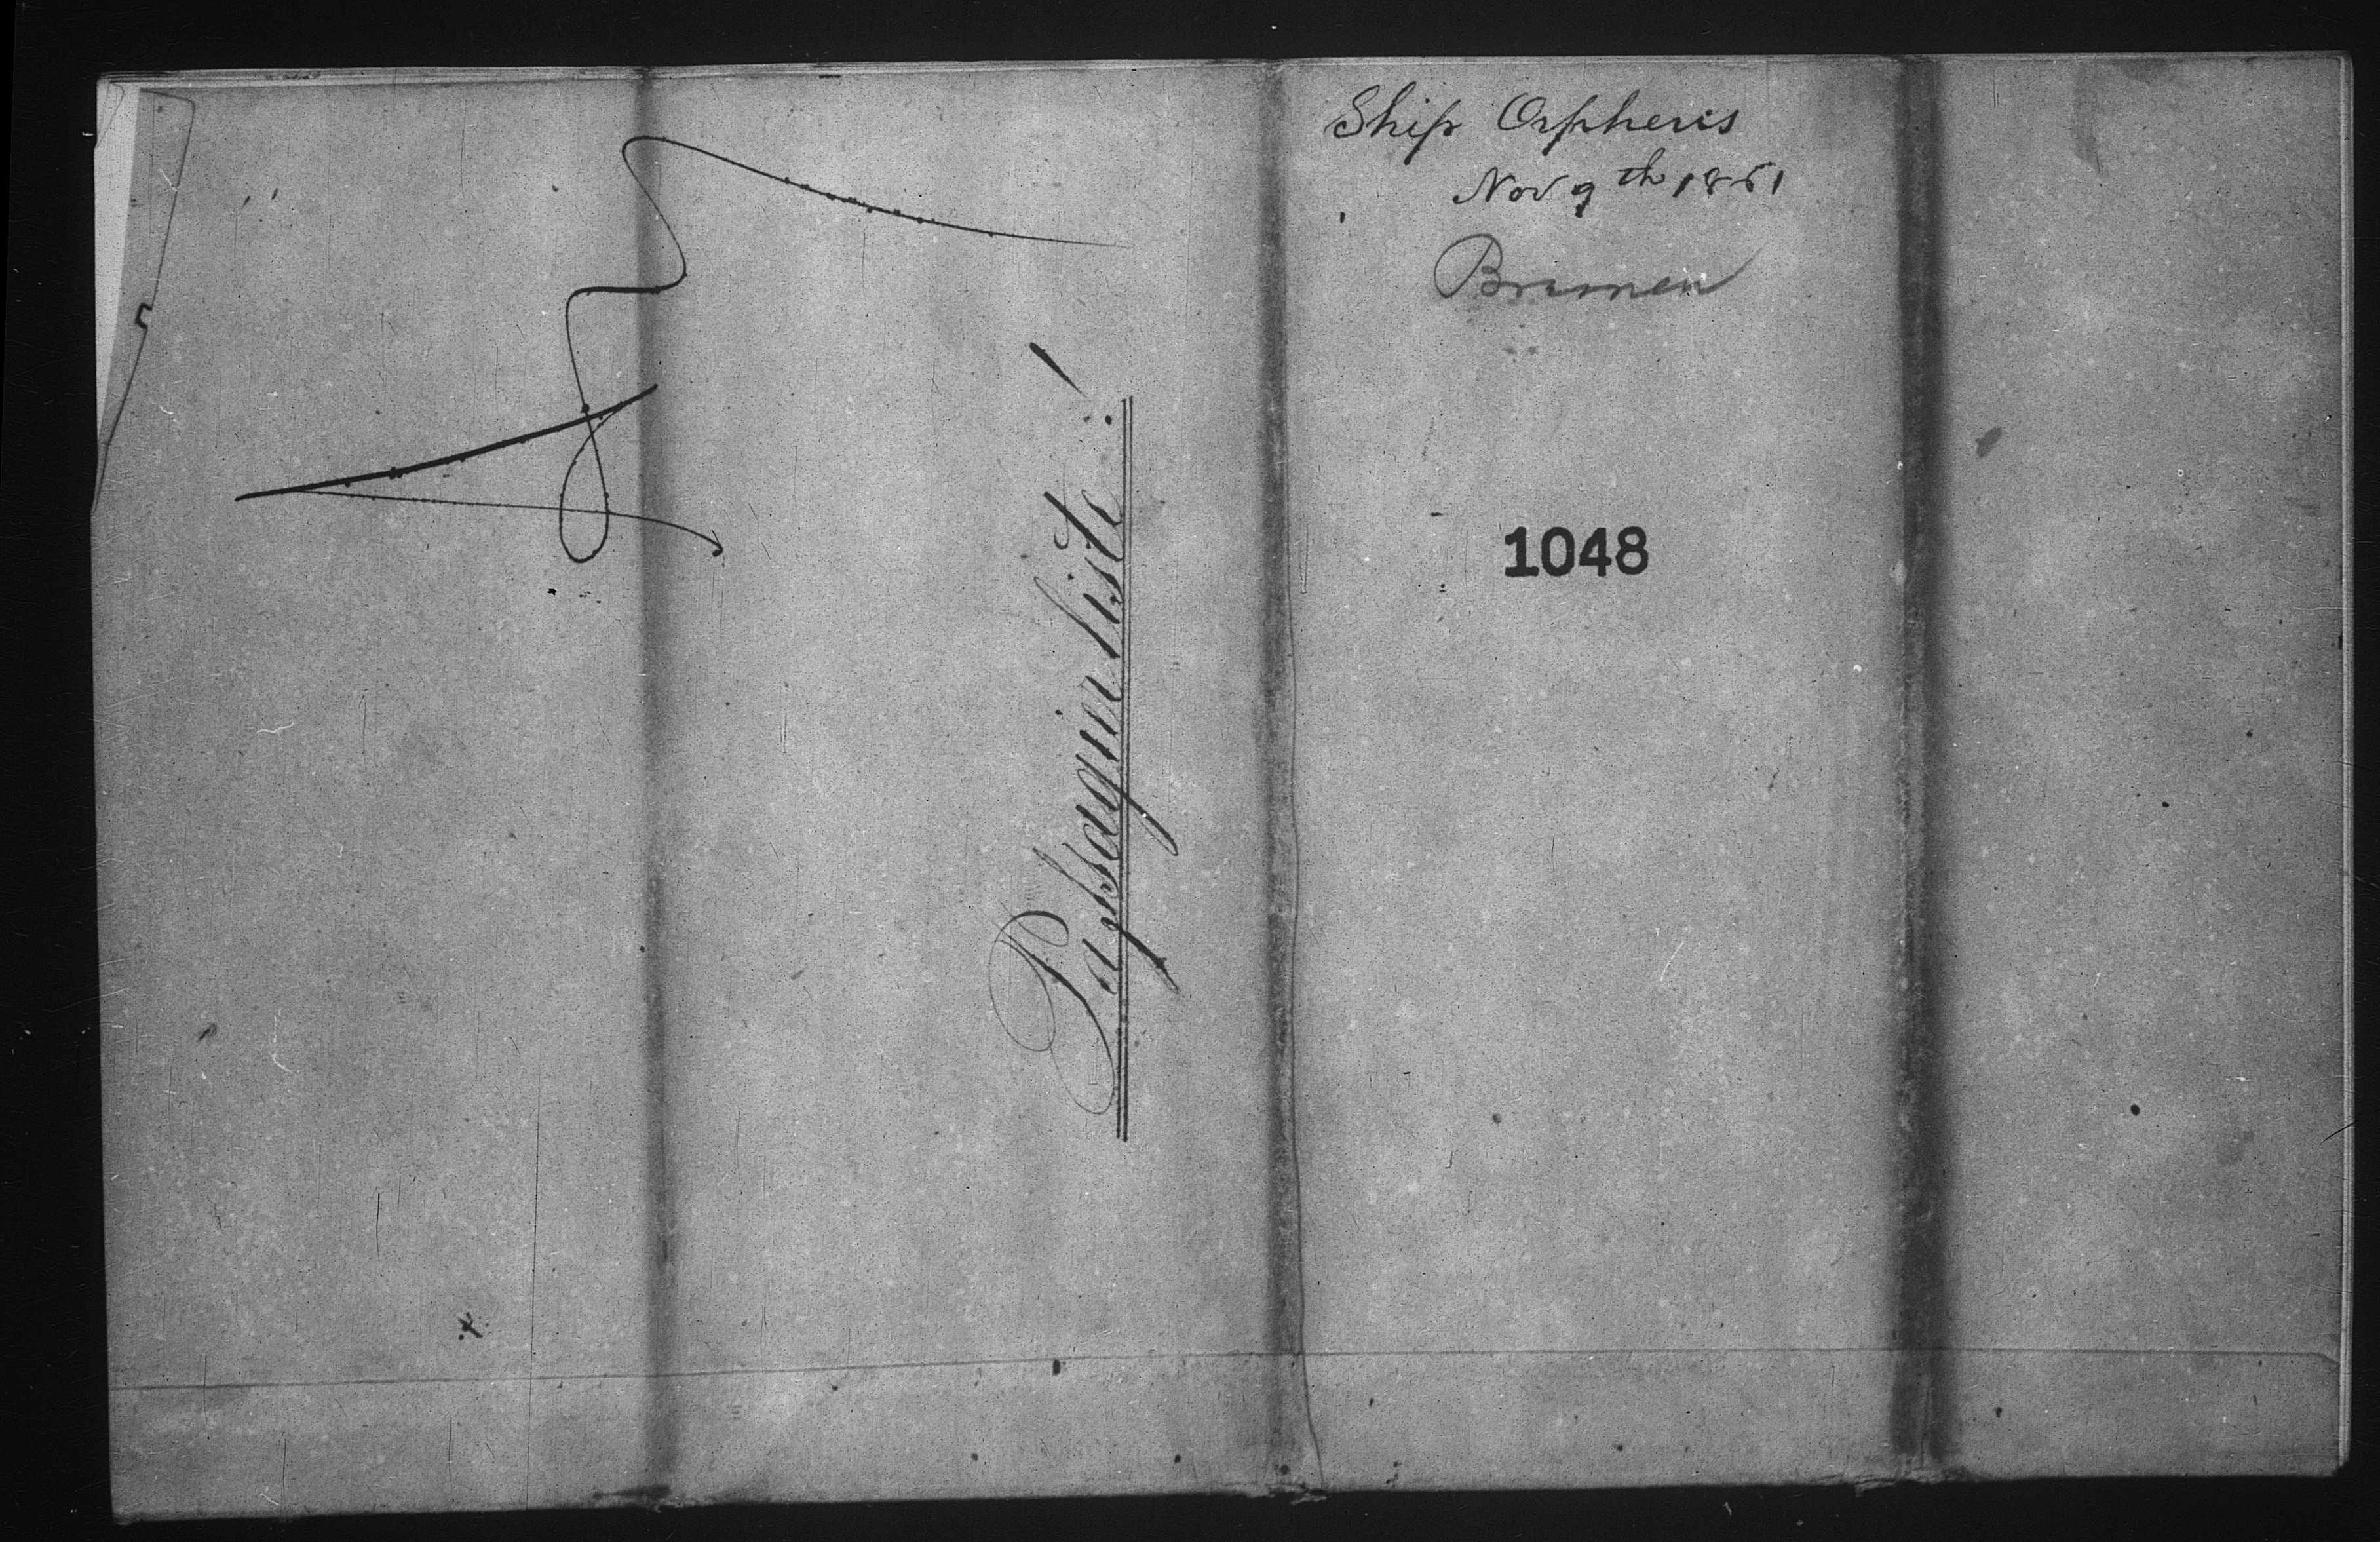 Ship Orpheus
Nov 9th 1861
Bremen
1048
Passagierliste!